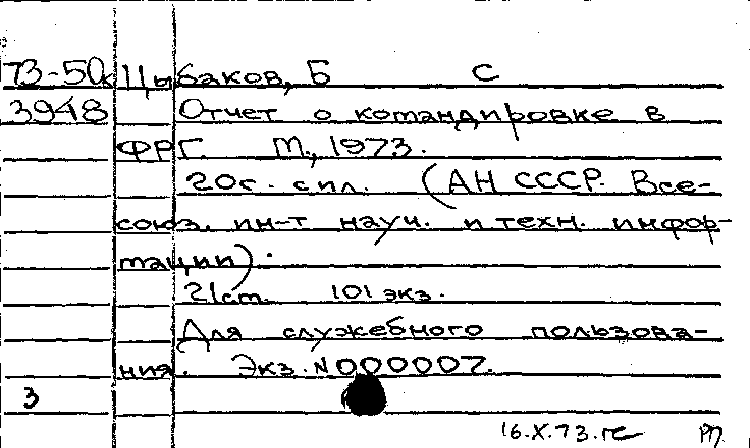 73-50к Цыбаков, Б С
3948 Отчет о командировке в
ФРГ. М., 1973.
20с. с ил. (АН СССР. Все-
союз. ин-т науч. и техн. инфор-
мации).
21см. 101 экз.
Для служебного пользова-
ния. Экз. N000007.
3
16.X.73.